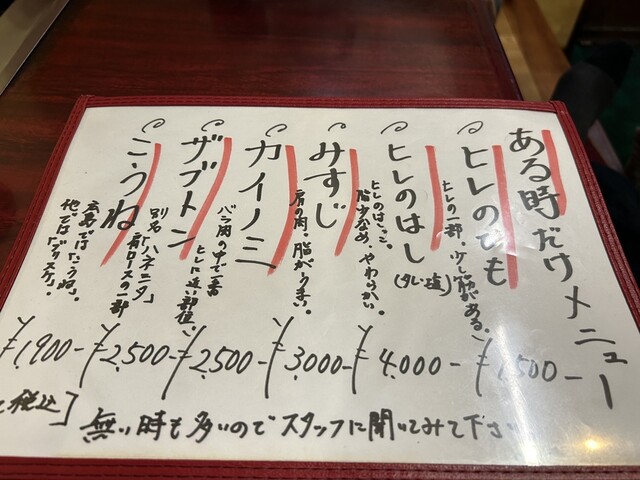 ある時だけメニュー
ヒレのひも
ヒレの一部。少し筋がある。
ヒレのはし
(タレ・塩)
ヒレのはしっこ。
脂少なめ、やわらかい。
¥4,000-
みすじ
肩の肉。脂がうまい。
¥3,000-
カイノミ
バラ肉の中で一番
ヒレに近い部位。
¥2,500-
ザブトン
別名「ハネシタ」
肩ロースの一部
¥2,500-
こうね
広島では「こうね」。
他では「ブリスケ」。
¥1,900-
税込]
無い時も多いのでスタッフに聞いてみて下さ